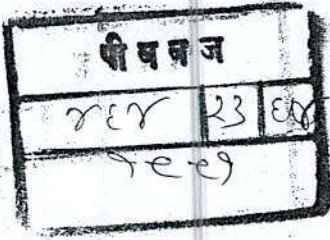 पी व ब्र ज
४६४ २३ ६४
१९९१